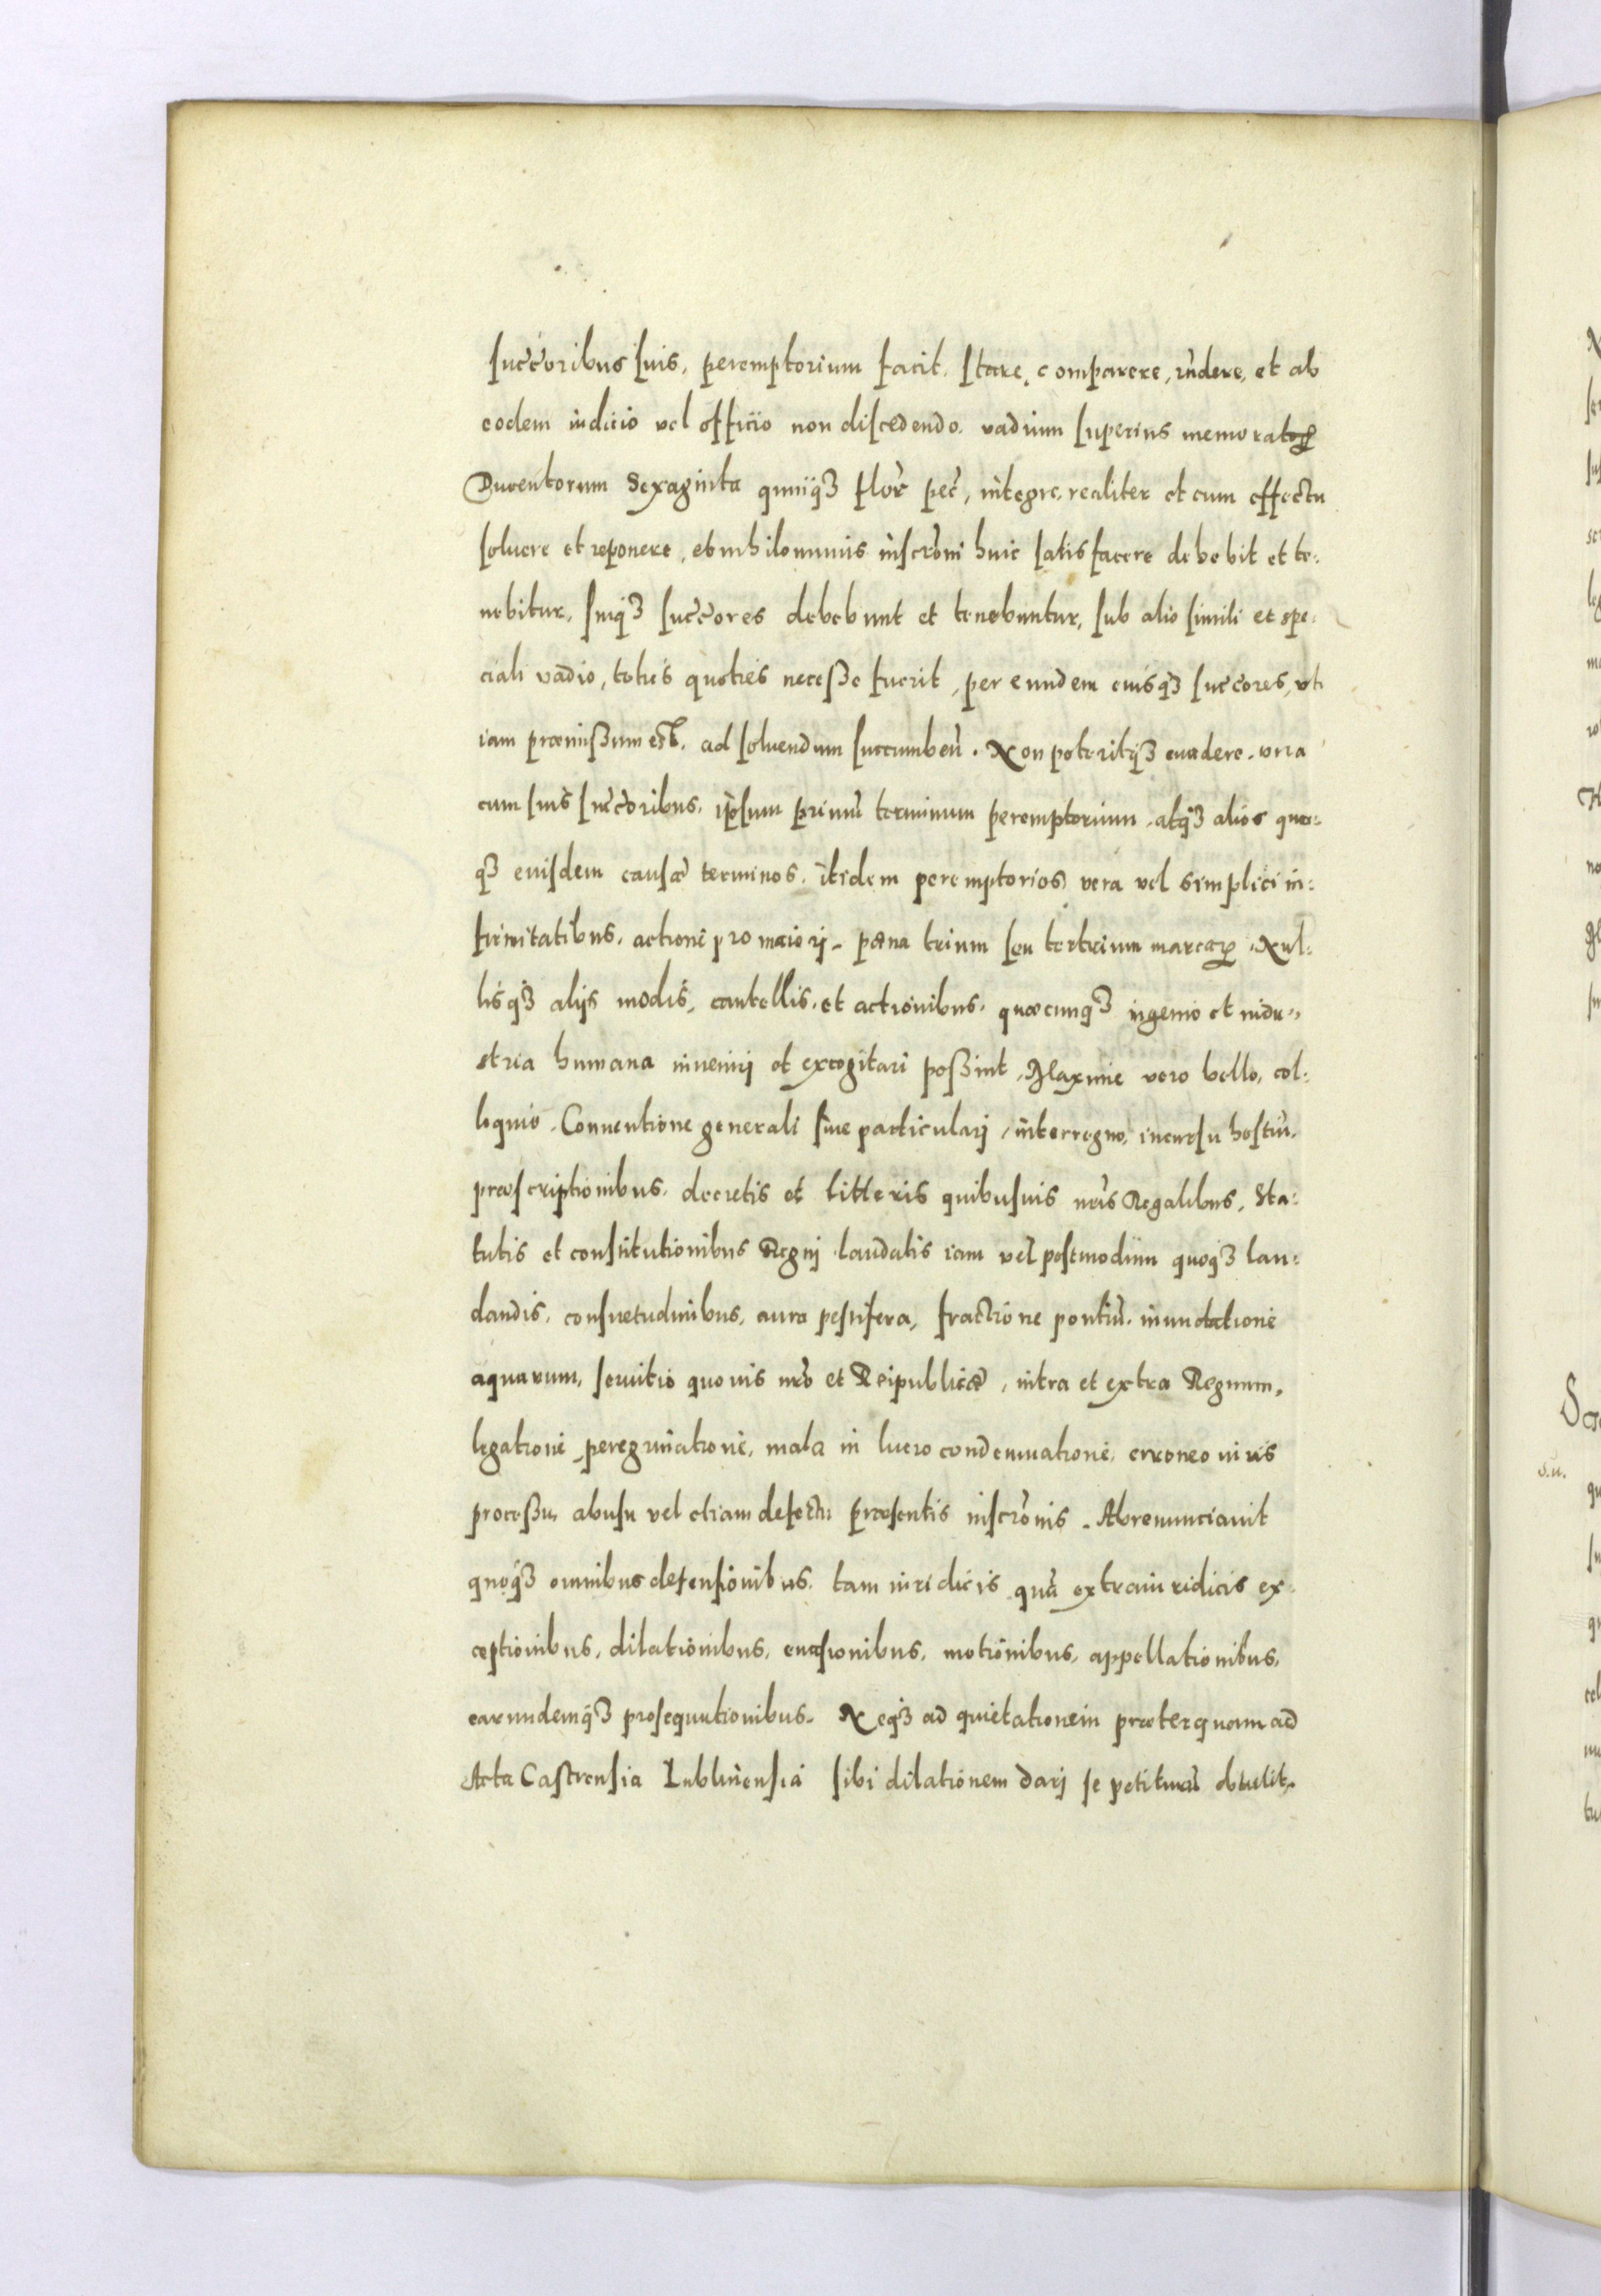 succ̃oribus suis, peremptorium facit, stare, comparere, rñdere, et ab
eodem iudicio vel officio non discedendo, vadium superius memoratoꝝ
Ducentorum Sexaginta quinqꝫ flor̃ pec̃, integre, realiter et cum effectu
soluere et reponere, et nihilominus inscrõni huic satisfacere debebit et te:
nebitur, suiqꝫ succ̃ores debebunt et tenebuntur, sub alio simili et spe:
ciali vadio, toties quoties necesse fuerit, per eundem eiusqꝫ succ̃ores, vti
iam præmissum est, ad soluendum succumbeñ. Non poteritqꝫ euadere, vna
cum suis succ̃oribus, ipsum primũ terminum peremptorium, atqꝫ alios quo:
qꝫ eiusdem causæ terminos, itidem peremptorios, vera vel simplici in:
firmitatibus, actione pro maiorj, pæna trium seu tertrium marcarꝝ, Nul:
lisqꝫ alijs modis, cautellis, et actionibus, quæcunqꝫ ingenio et indu:
stria humana inuenirj et excogitari possint, Maxime vero bello, col:
loquio, Conuentione generali siue particularj, interregno, incursu hostiũ,
præscriptionibus, decretis et litteris quibusuis nr̃is Regalibus, Sta:
tutis et constitutionibus Regnj laudatis iam vel postmodum quoqꝫ lau:
dandis, consuetudinibus, aura pestifera, fractione pontiũ, inundatione
aquarum, seruitio quouis nr̃o et Reipublicæ, intra et extra Regnum,
legatione, peregrinatione, mala in lucro condemnatione, erroneo iuris
processu, abusu vel etiam defectu præsentis inscrõnis. Abrenunciauit
quoqꝫ omnibus defensionibus, tam iuridicis quã extraiuridicis ex:
ceptionibus, dilationibus, euasionibus, motionibus, appellationibus,
earundemqꝫ prosequutionibus. Neqꝫ ad quietationem præterquam ad
Acta Castrensia Lublinensia sibi dilationem darj se petiturũ obtulit.